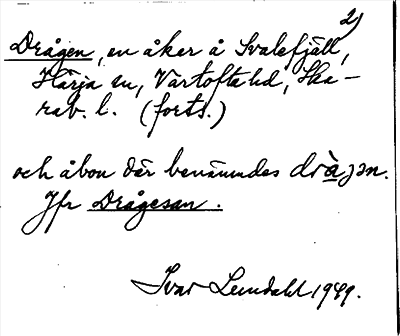 2)
Drågen, en åker å Svalefjäll,
Härja sn, Vartofta hd, Ska-
rab. l. (forts.)
och åbon där benämndes drå̀jən.
Jfr Drågesan.
Ivar Lundahl 1949.